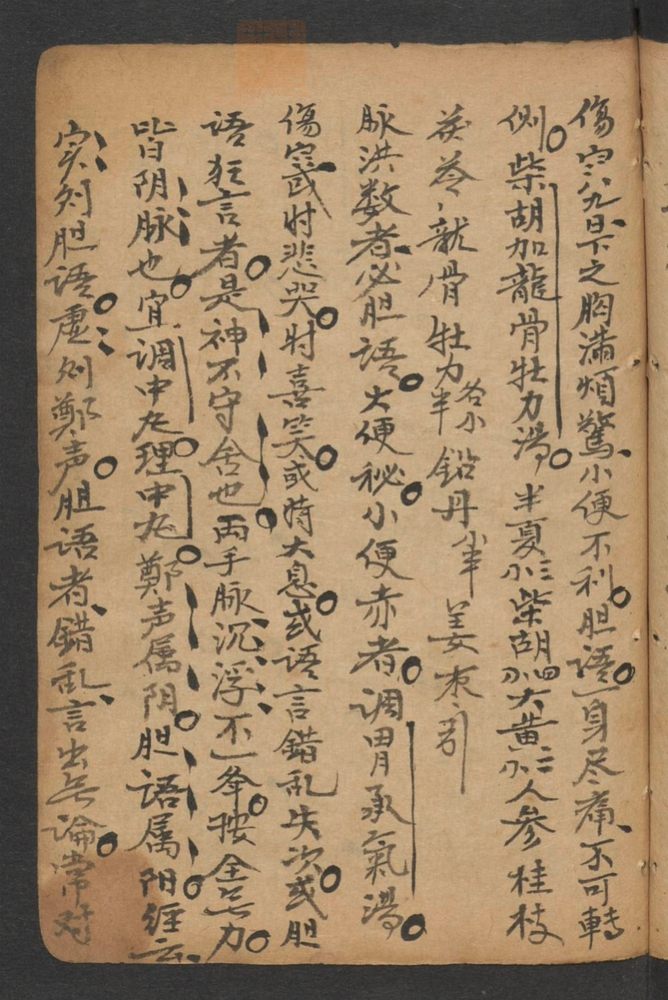 傷寒八九日下之胸滿煩驚小便不利胆語一身尽痛不可轉
側柴胡加龍骨牡力湯半夏小三柴胡小四大黄小二人参桂枝
茯苓龍骨牡力半各小鉛丹小半姜枣引
脉洪数者必胆語大便秘小便赤者调胃承氣湯
傷寒或时悲哭时喜笑或時大息或语言錯乱失次或胆
语狂言者是神不守舍也両手脉沉浮不一举按全无力
皆阴脉也宜调中丸理中丸鄭声属阴胆语属阳经云
实則胆语虚則鄭声胆语者錯乱言出无論常对